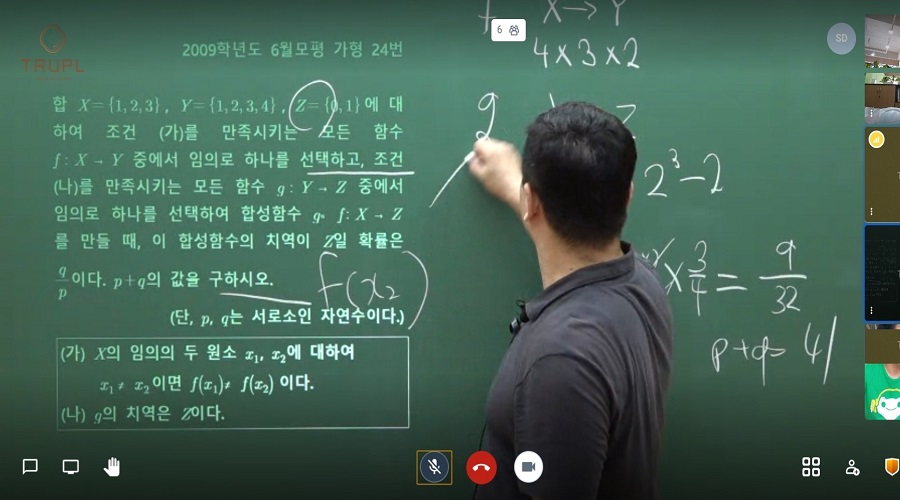 TRUPL
2009학년도 6월모평 가형 24번
합 X={1,2,3}, Y={1,2,3,4}, Z={0,1}에 대
하여 조건 (가)를 만족시키는 모든 함수
f:X→Y 중에서 임의로 하나를 선택하고, 조건
(나)를 만족시키는 모든 함수 g:Y→Z 중에서
임의로 하나를 선택하여 합성함수 g∘f:X→Z
를 만들 때, 이 합성함수의 치역이 Z일 확률은
q/p이다. p+q의 값을 구하시오.
(단, p, q는 서로소인 자연수이다.)
(가) X의 임의의 두 원소 x₁, x₂에 대하여
x₁≠x₂이면 f(x₁)≠f(x₂)이다.
(나) g의 치역은 Z이다.
f(x₂)
f X→Y
4×3×2
g
2³-2
×3/4=9/32
p+q=41
6
SD